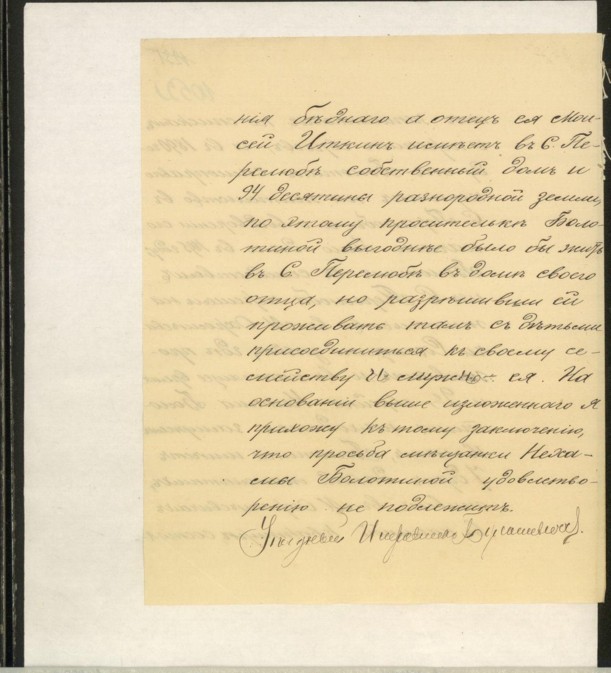 нія бѣднаго а отецъ ея Мои-
сей Иткинъ имѣетъ въ С. Пе-
релюбѣ собственный домъ и
94 десятины разнородной земли,
по этому просительнѣ Боло-
тиной выгоднѣе было бы жить
въ С. Перелюбѣ въ домѣ своего
отца, но разрѣшивши ей
проживать тамъ съ дѣтьми
присоединиться къ своему се-
мейству и ея. На
основаніи выше изложеннаго я
прихожу къ тому заключенію,
что просьба мѣщанки Неха-
мы Болотиной удовлетво-
ренію не подлежитъ.
Уѣздный Исправникъ